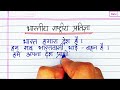 भारतीय राष्ट्रीय प्रतिज्ञा
भारत हमारा देश है ।
हम सब भारतवासी भाई - बहन है ।
हमे अपना देश